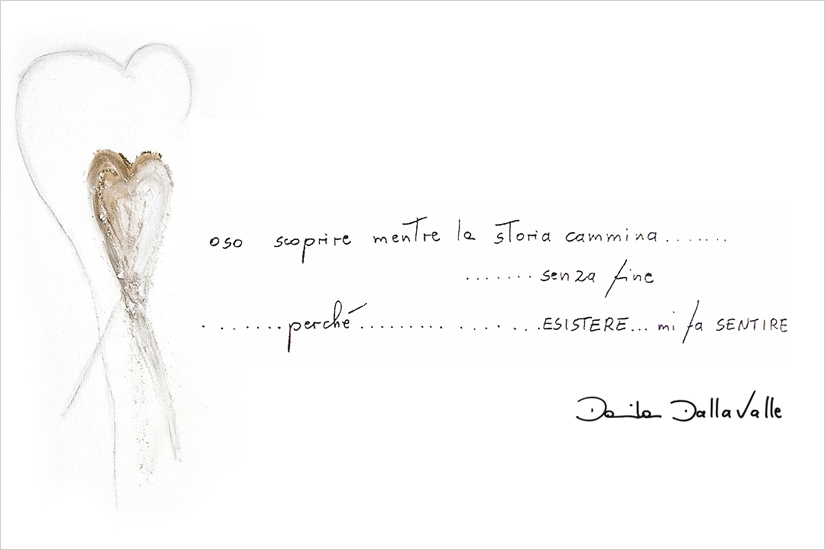 oso scoprire mentre la storia cammina.......
.......senza fine
........perché......... .......ESISTERE... mi fa SENTIRE
Danila Dallavalle